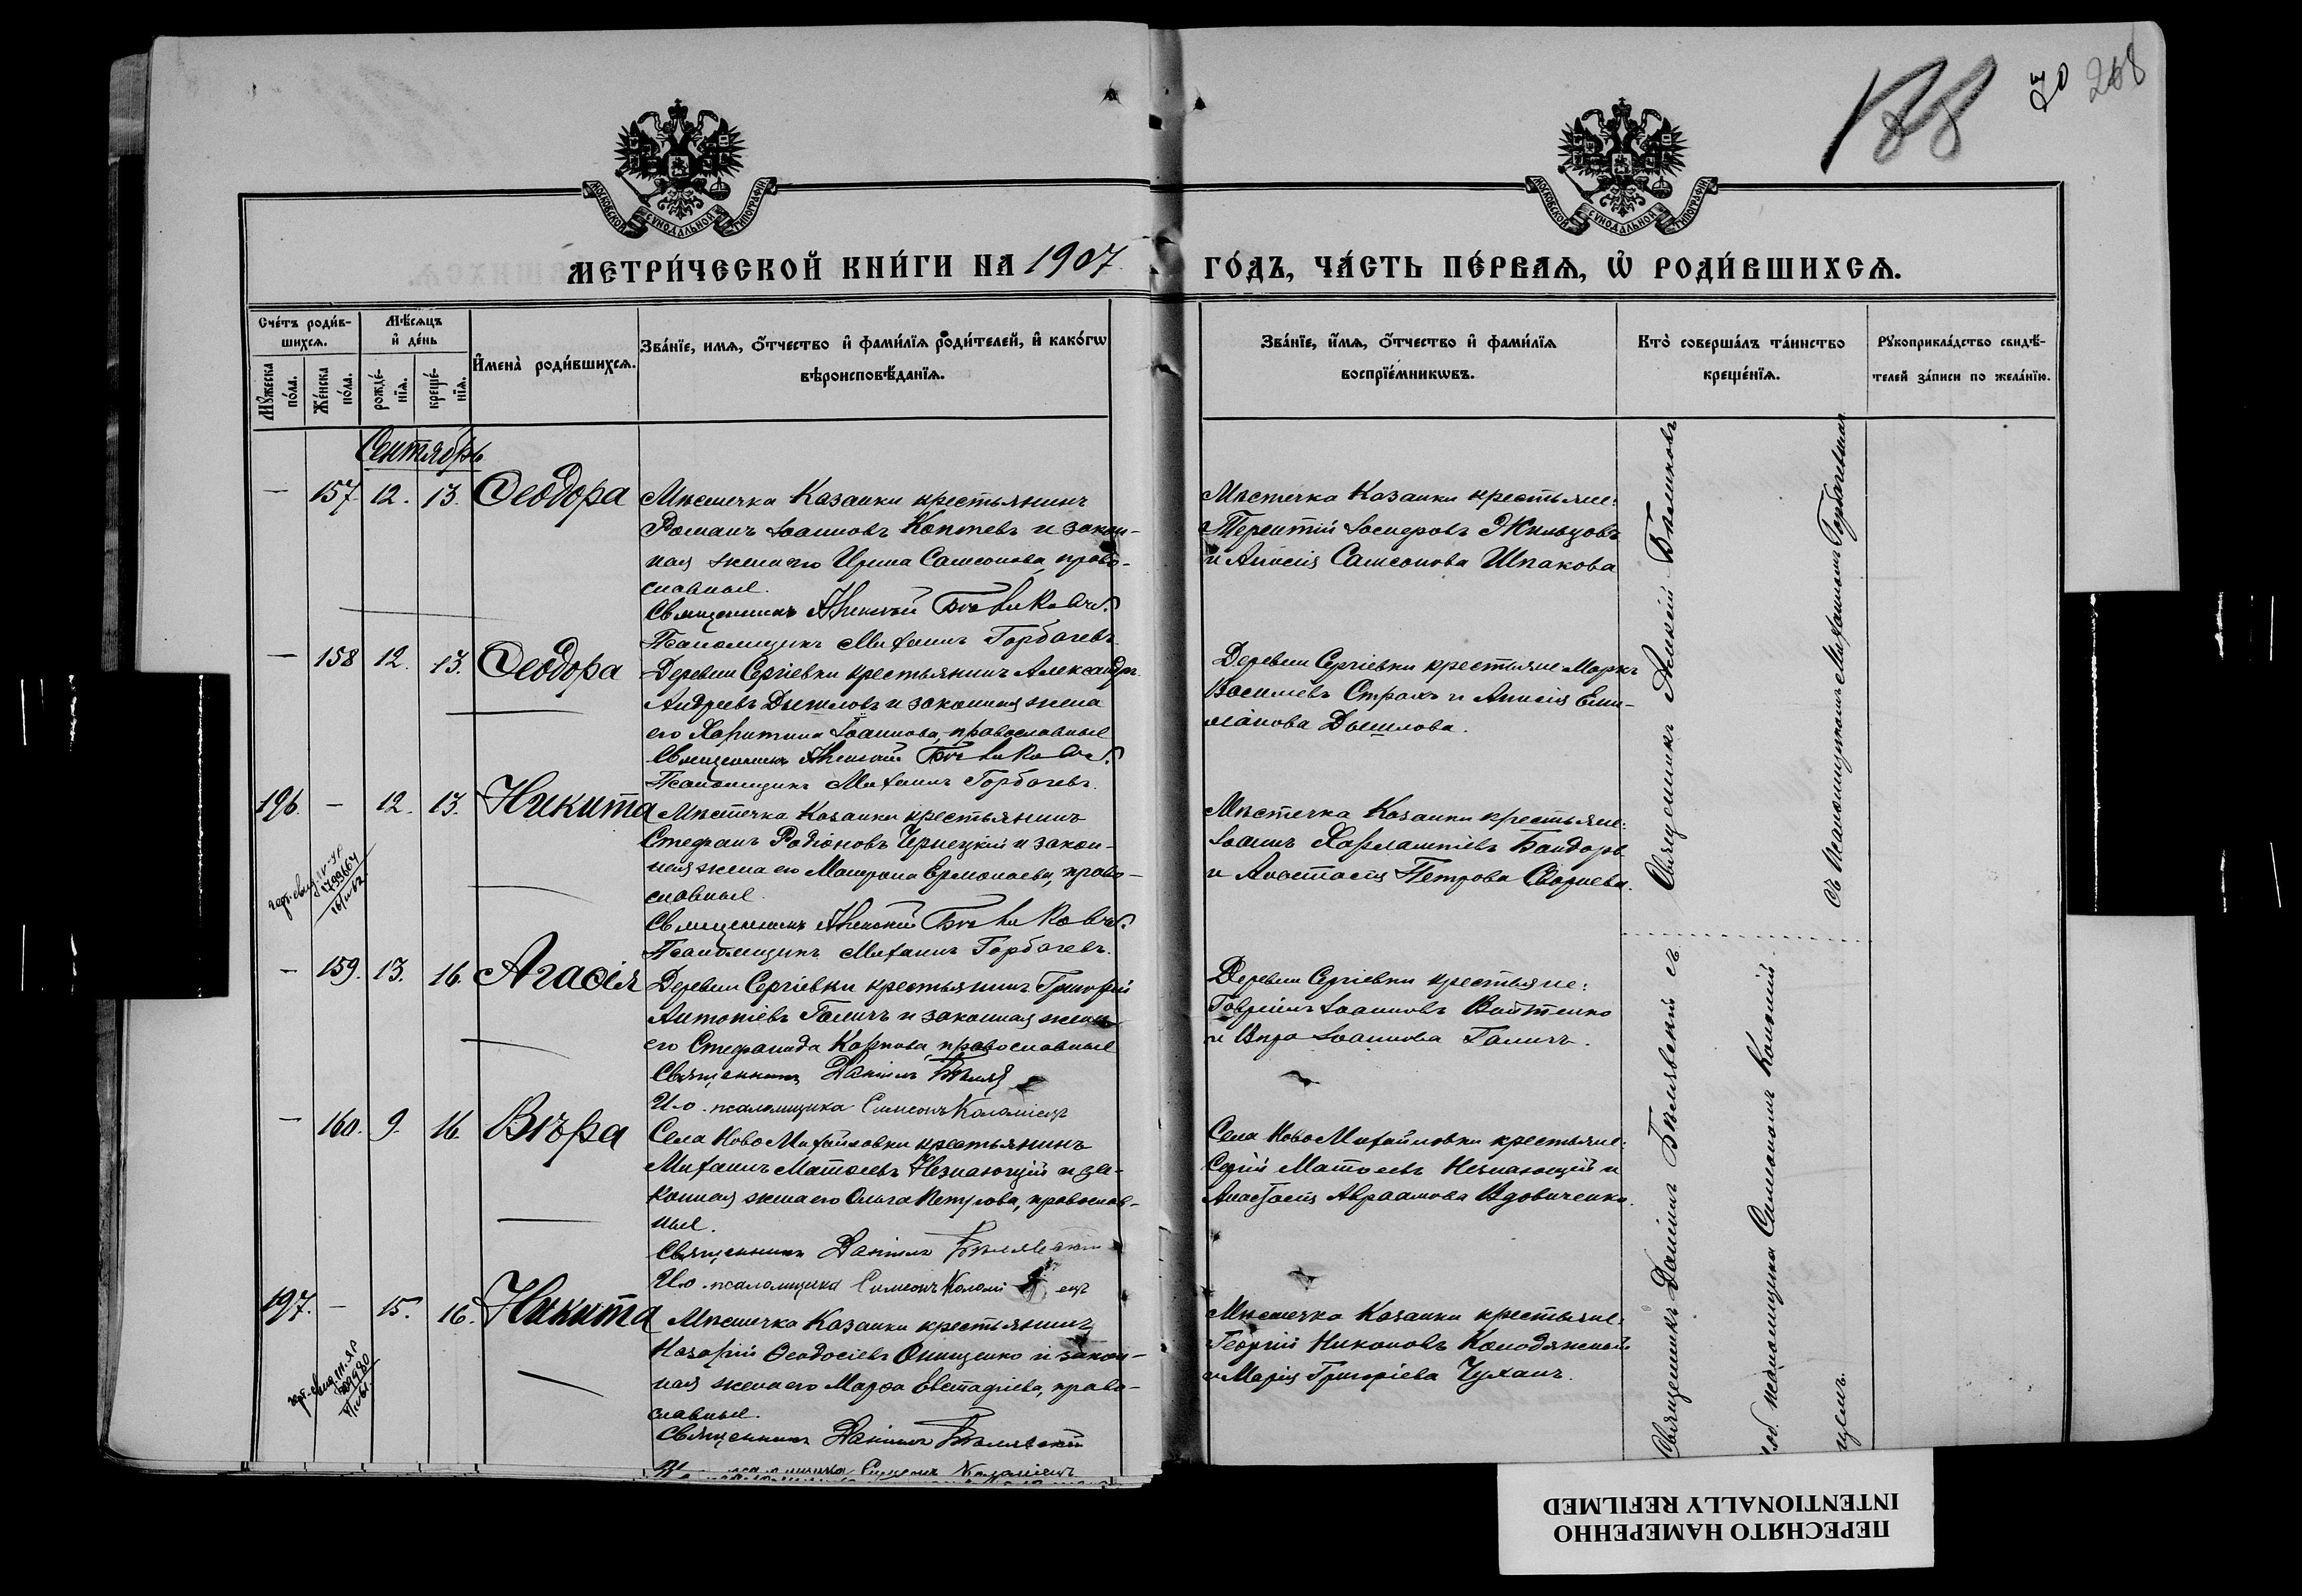 188
70
268
МОСКОВСКОЙ СѴНОДАЛЬНОЙ ТИПОГРАФІИ
МОСКОВСКОЙ СѴНОДАЛЬНОЙ ТИПОГРАФІИ
МЕТРИ́ЧЕСКОЙ КНИ́ГИ НА 1907
ГО́ДЪ, ЧА́СТЬ ПЕ́РВАѦ, Ѡ҆ РОДИ́ВШИХСѦ.
Сче́тъ роди́в-
шихсѧ.
Му́жеска
по́ла.
Же́нска
по́ла.
Мѣ́сѧцъ
и҆ де́нь
рожде́-
нїѧ.
креще́-
нїѧ.
И҆мена̀ роди́вшихсѧ.
Зва́нїе, имѧ, о҆́тчество и҆ фами́лїѧ роди́телей, и҆ како́гѡ
вѣроисповѣ́данїѧ.
Зва́нїе, и҆́мѧ, о҆́тчество и҆ фами́лїѧ
воспрїе́мникѡвъ.
Кто̀ соверша́лъ та́инство
креще́нїѧ.
Рꙋкоприкла́дство свидѣ́-
телей за́писи по жела́нїю.
Сентябрь
— 157. 12. 13. Ѳеодора
Мѣстечка Казанки крестьянинъ
Романъ Іоанновъ Коптевъ и закон-
ная жена его Ирина Самсонова, право-
славные.
Священникъ Алексій Бѣликовъ.
Псаломщикъ Михаилъ Горбачевъ.
Мѣстечка Казанки крестьяне:
Терентій Іосифовъ Жильцовъ
и Анисія Самсонова Шпакова
— 158 12. 13. Ѳеодора
Деревни Сергіевки крестьянинъ Александръ
Андреевъ Дымловъ и законная жена
его Харитина Іоаннова, православные
Священникъ Алексій Бѣликовъ.
Псаломщикъ Михаилъ Горбачевъ.
Деревни Сергіевки крестьяне Маркъ
Василіевъ Страхъ и Анисія Еми-
ліанова Дымлова.
196. — 12. 13. Никита
Мѣстечка Казанки крестьянинъ
Стефанъ Родіоновъ Чернецкій и закон-
ная жена его Матрона Ермолаева, право-
славные.
Священникъ Алексій Бѣликовъ.
Псаломщикъ Михаилъ Горбачевъ.
Мѣстечка Казанки крестьяне:
Іоаннъ Харлампіевъ Бандоръ
и Анастасія Петрова
— 159. 13. 16. Агаѳія
Деревни Сергіевки крестьянинъ Григорій
Антоніевъ Галичъ и законная жена
его Стефанида Карпова, православные
Священникъ Даніилъ
И. о. псаломщика Симеонъ Коломіецъ
Деревни Сергіевки крестьяне:
Гавріилъ Іоанновъ Войтенко
и Вѣра Іоаннова Галичъ.
— 160. 9. 16. Вѣра
Села Ново Михайловки крестьянинъ
Михаилъ Матѳеевъ Незнающій и за-
конная жена его Ольга Петрова, православ-
ные.
Священникъ Даніилъ Бѣлявскій
И. о. псаломщика Симеонъ Коломіецъ
Села Ново Михайловки крестьяне:
Сергій Матѳеевъ Незнающій и
Анастасія Авраамова Вдовиченко.
197. — 15. 16. Никита
Мѣстечка Казанки крестьянинъ
Назарій Ѳеодосіевъ Онищенко и закон-
ная жена его Марѳа Евстафіева, право-
славные.
Священникъ Даніилъ Бѣлявскій
псаломщика Симеонъ Коломіецъ
Мѣстечка Казанки крестьяне:
Георгій Никоновъ Колодяжный
и Марія Григоріева Чуханъ.
Священникъ Алексій Бѣликовъ
съ псаломщикомъ Михаиломъ Горбачевымъ
Священникъ Даніилъ Бѣлявскій съ
об. псаломщика Симеономъ Коломій-
цемъ.
ПЕРЕСНЯТО НАМЕРЕННО
INTENTIONALLY REFILMED